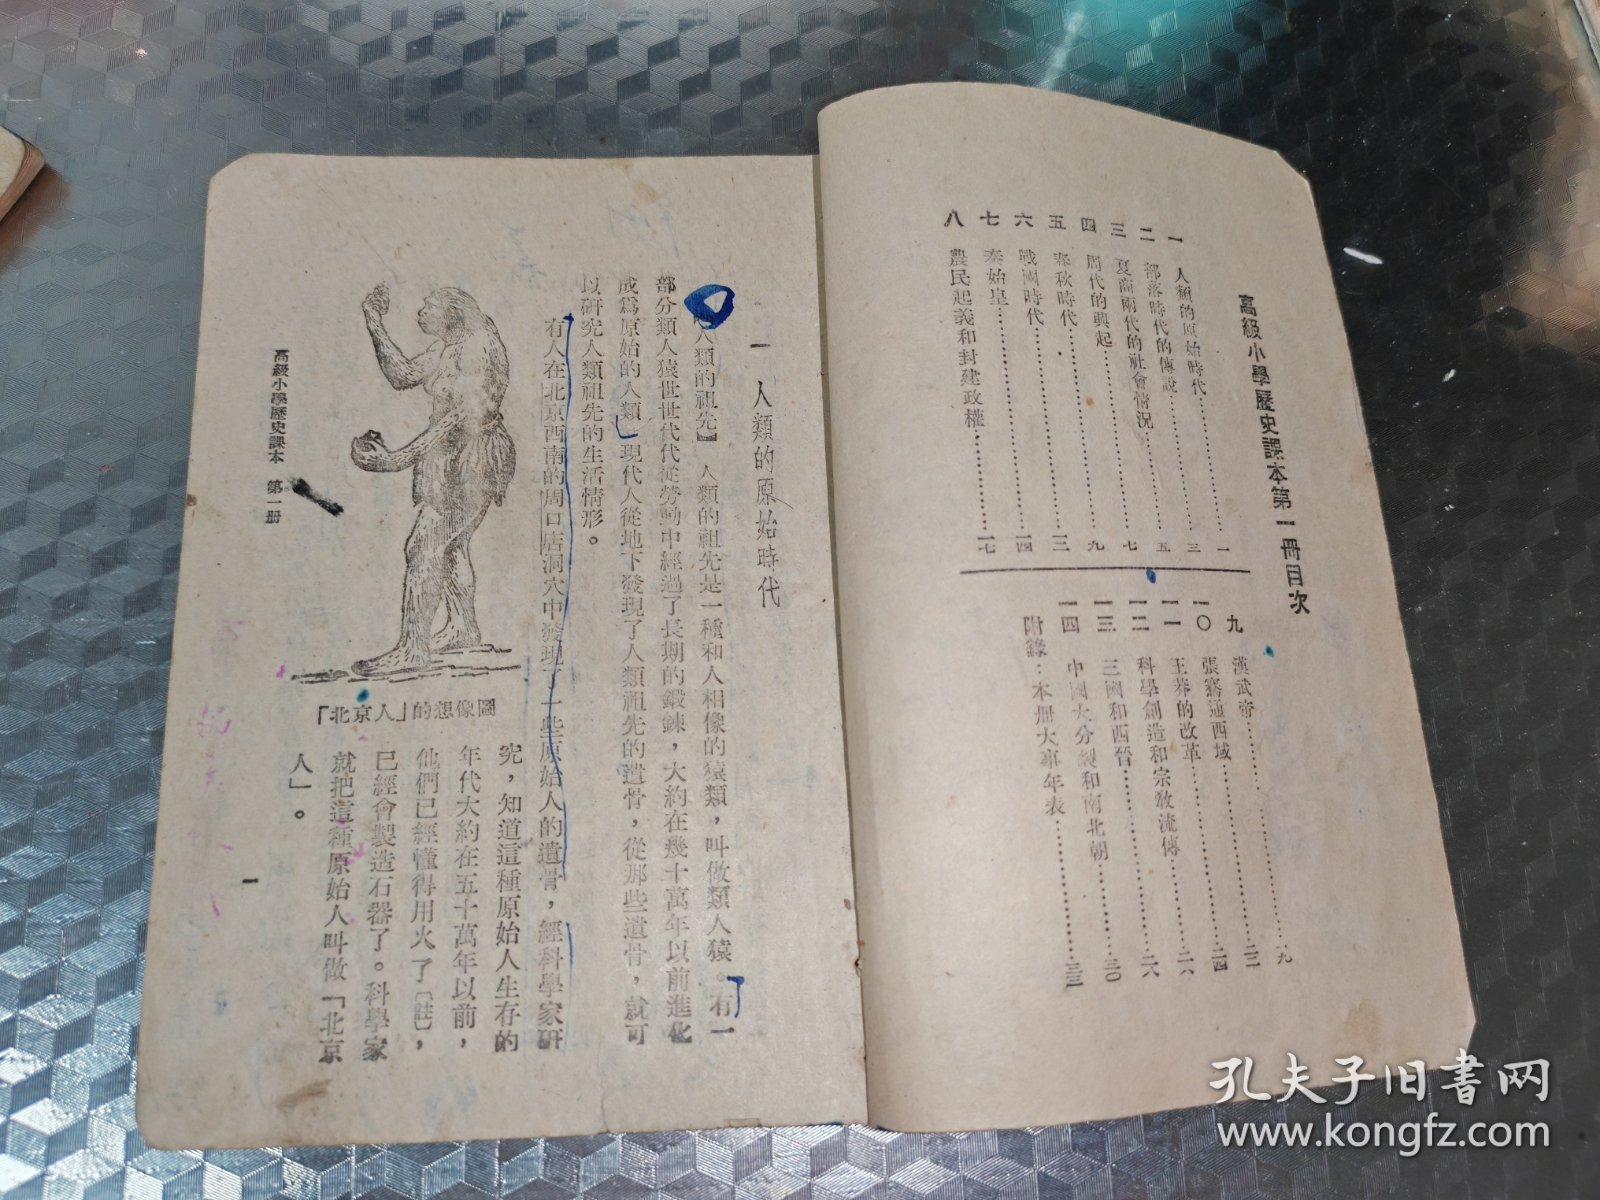 高級小學歷史課本第一冊目次
一 人類的原始時代……一
二 部落時代的傳說……三
三 夏商兩代的社會情況……五
四 周代的興起……七
五 春秋時代……九
六 戰國時代……一二
七 秦始皇……一四
八 農民起義和封建政權……一七
九 漢武帝……一九
一〇 張騫通西域……二二
一一 王莽的改革……二四
一二 科學創造和宗教流傳……二六
一三 三國和西晉……二六
一四 中國大分裂和南北朝……三〇
附錄：本冊大事年表……三三
一 人類的原始時代
【人類的祖先】 人類的祖先是一種和人相像的猿類，叫做類人猿。有一
部分類人猿世世代代從勞動中經過了長期的鍛鍊，大約在幾十萬年以前進化
成爲原始的人類。現代人從地下發現了人類祖先的遺骨，從那些遺骨，就可
以研究人類祖先的生活情形。
有人在北京西南的周口店洞穴中發現了一些原始人的遺骨，經科學家研
究，知道這種原始人生存的
年代大約在五十萬年以前，
他們已經懂得用火了〔註〕，
已經會製造石器了。科學家
就把這種原始人叫做「北京
人」。
「北京人」的想像圖
高級小學歷史課本 第一冊
一
孔夫子旧書网
www.kongfz.com